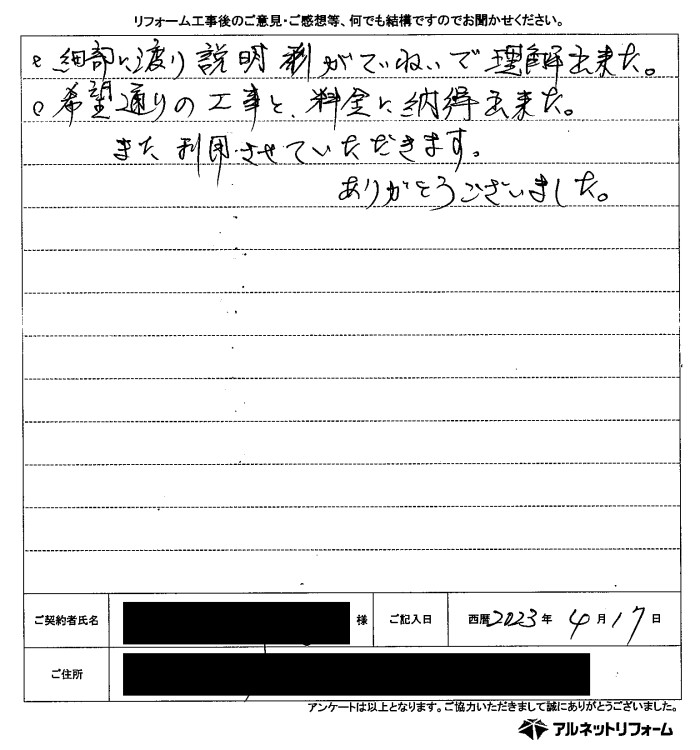 リフォーム工事後のご意見・ご感想等、何でも結構ですのでお聞かせください。
。細部に渡り説明 がていねいで理解出来た。
。希望通りの工事と、料金に納得出来た。
また利用させていただきます。
ありがとうございました。
ご契約者氏名 様 ご記入日 西暦2023年 4月17日
ご住所
アンケートは以上となります。ご協力いただきまして誠にありがとうございました。
アルネットリフォーム